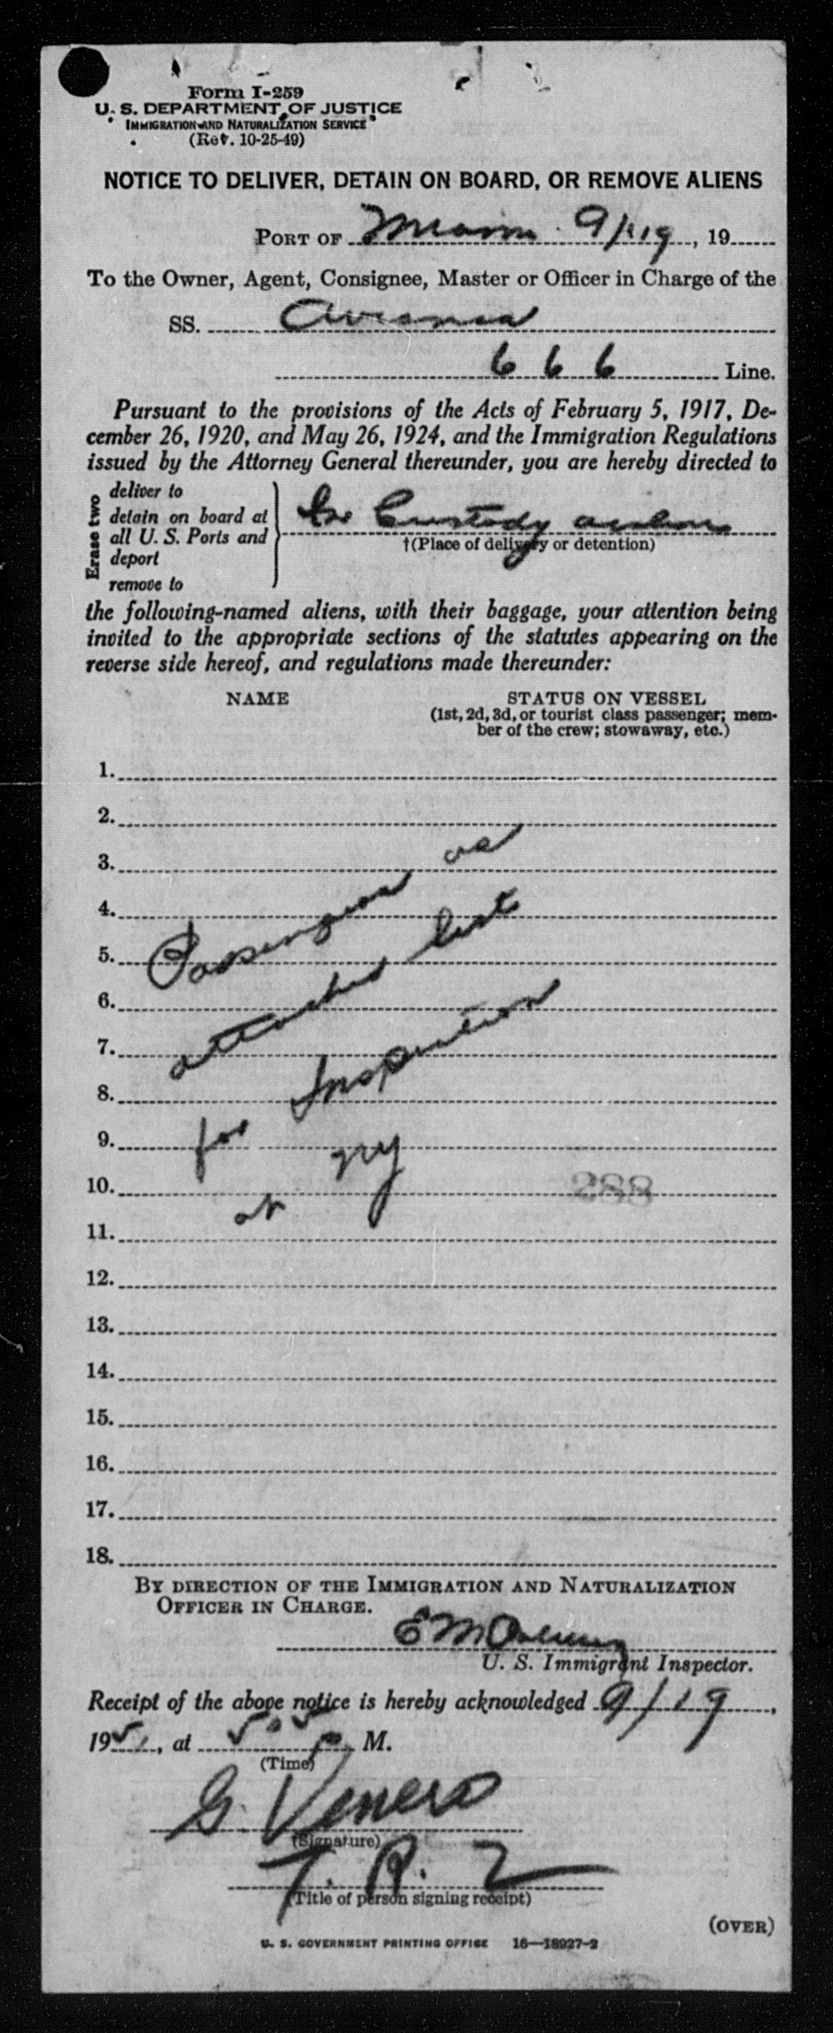 Form I-259
U. S. DEPARTMENT OF JUSTICE
IMMIGRATION AND NATURALIZATION SERVICE
(Rev. 10-25-49)
NOTICE TO DELIVER, DETAIN ON BOARD, OR REMOVE ALIENS
PORT OF Miami 9/19, 19
To the Owner, Agent, Consignee, Master or Officer in Charge of the
SS. Avianca
6 6 6 Line.
Pursuant to the provisions of the Acts of February 5, 1917, De-
cember 26, 1920, and May 26, 1924, and the Immigration Regulations
issued by the Attorney General thereunder, you are hereby directed to
Erase two
deliver to
detain on board at
all U. S. Ports and
deport
remove to
In Custody airline
†(Place of delivery or detention)
the following-named aliens, with their baggage, your attention being
invited to the appropriate sections of the statutes appearing on the
reverse side hereof, and regulations made thereunder:
NAME
STATUS ON VESSEL
(1st, 2d, 3d, or tourist class passenger; mem-
ber of the crew; stowaway, etc.)
1.
2.
3.
4.
5.
6.
7.
8.
9.
10.
11.
12.
13.
14.
15.
16.
17.
18.
Passengers as
attached list
for Inspection
at NY
288
BY DIRECTION OF THE IMMIGRATION AND NATURALIZATION
OFFICER IN CHARGE.
E M
U. S. Immigrant Inspector.
Receipt of the above notice is hereby acknowledged 9/19,
1951, at 5 05 p M.
(Time)
G. Venero
(Signature)
T. R. 2
(Title of person signing receipt)
(OVER)
U. S. GOVERNMENT PRINTING OFFICE 16—18927-2